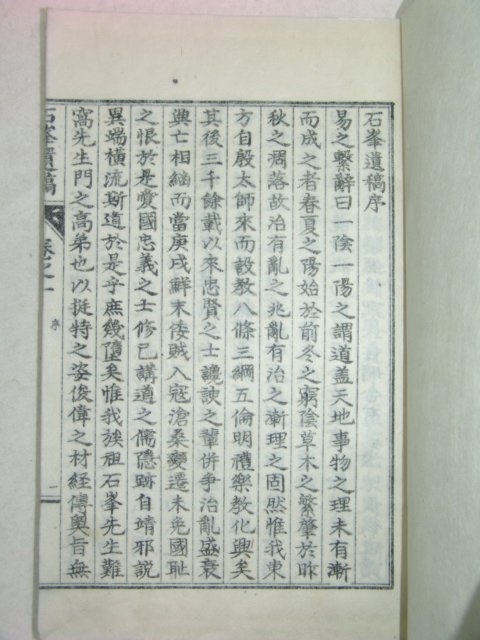 石峯遺稿序
易之繫辭曰一陰一陽之謂道盖天地事物之理未有漸
而成之者春夏之陽始於前冬之窮陰草木之繁肇於昨
秋之凋落故治有亂之兆亂有治之漸理之固然惟我東
方自殷太師來而設敎八條三綱五倫明禮樂敎化興矣
其後三千餘載以來忠賢之士讒諛之輩併爭治亂盛衰
興亡相繼而當庚戌鮮末倭賊入寇滄桑變遷未免國恥
之恨於是愛國忠義之士修己講道之儒隱跡自靖邪說
異端橫流斯道於是乎庶幾墮矣惟我族祖石峯先生難
窩先生門之高弟也以挺特之姿俊偉之材經傳奧旨無
石峯遺稿
卷之一
序
一